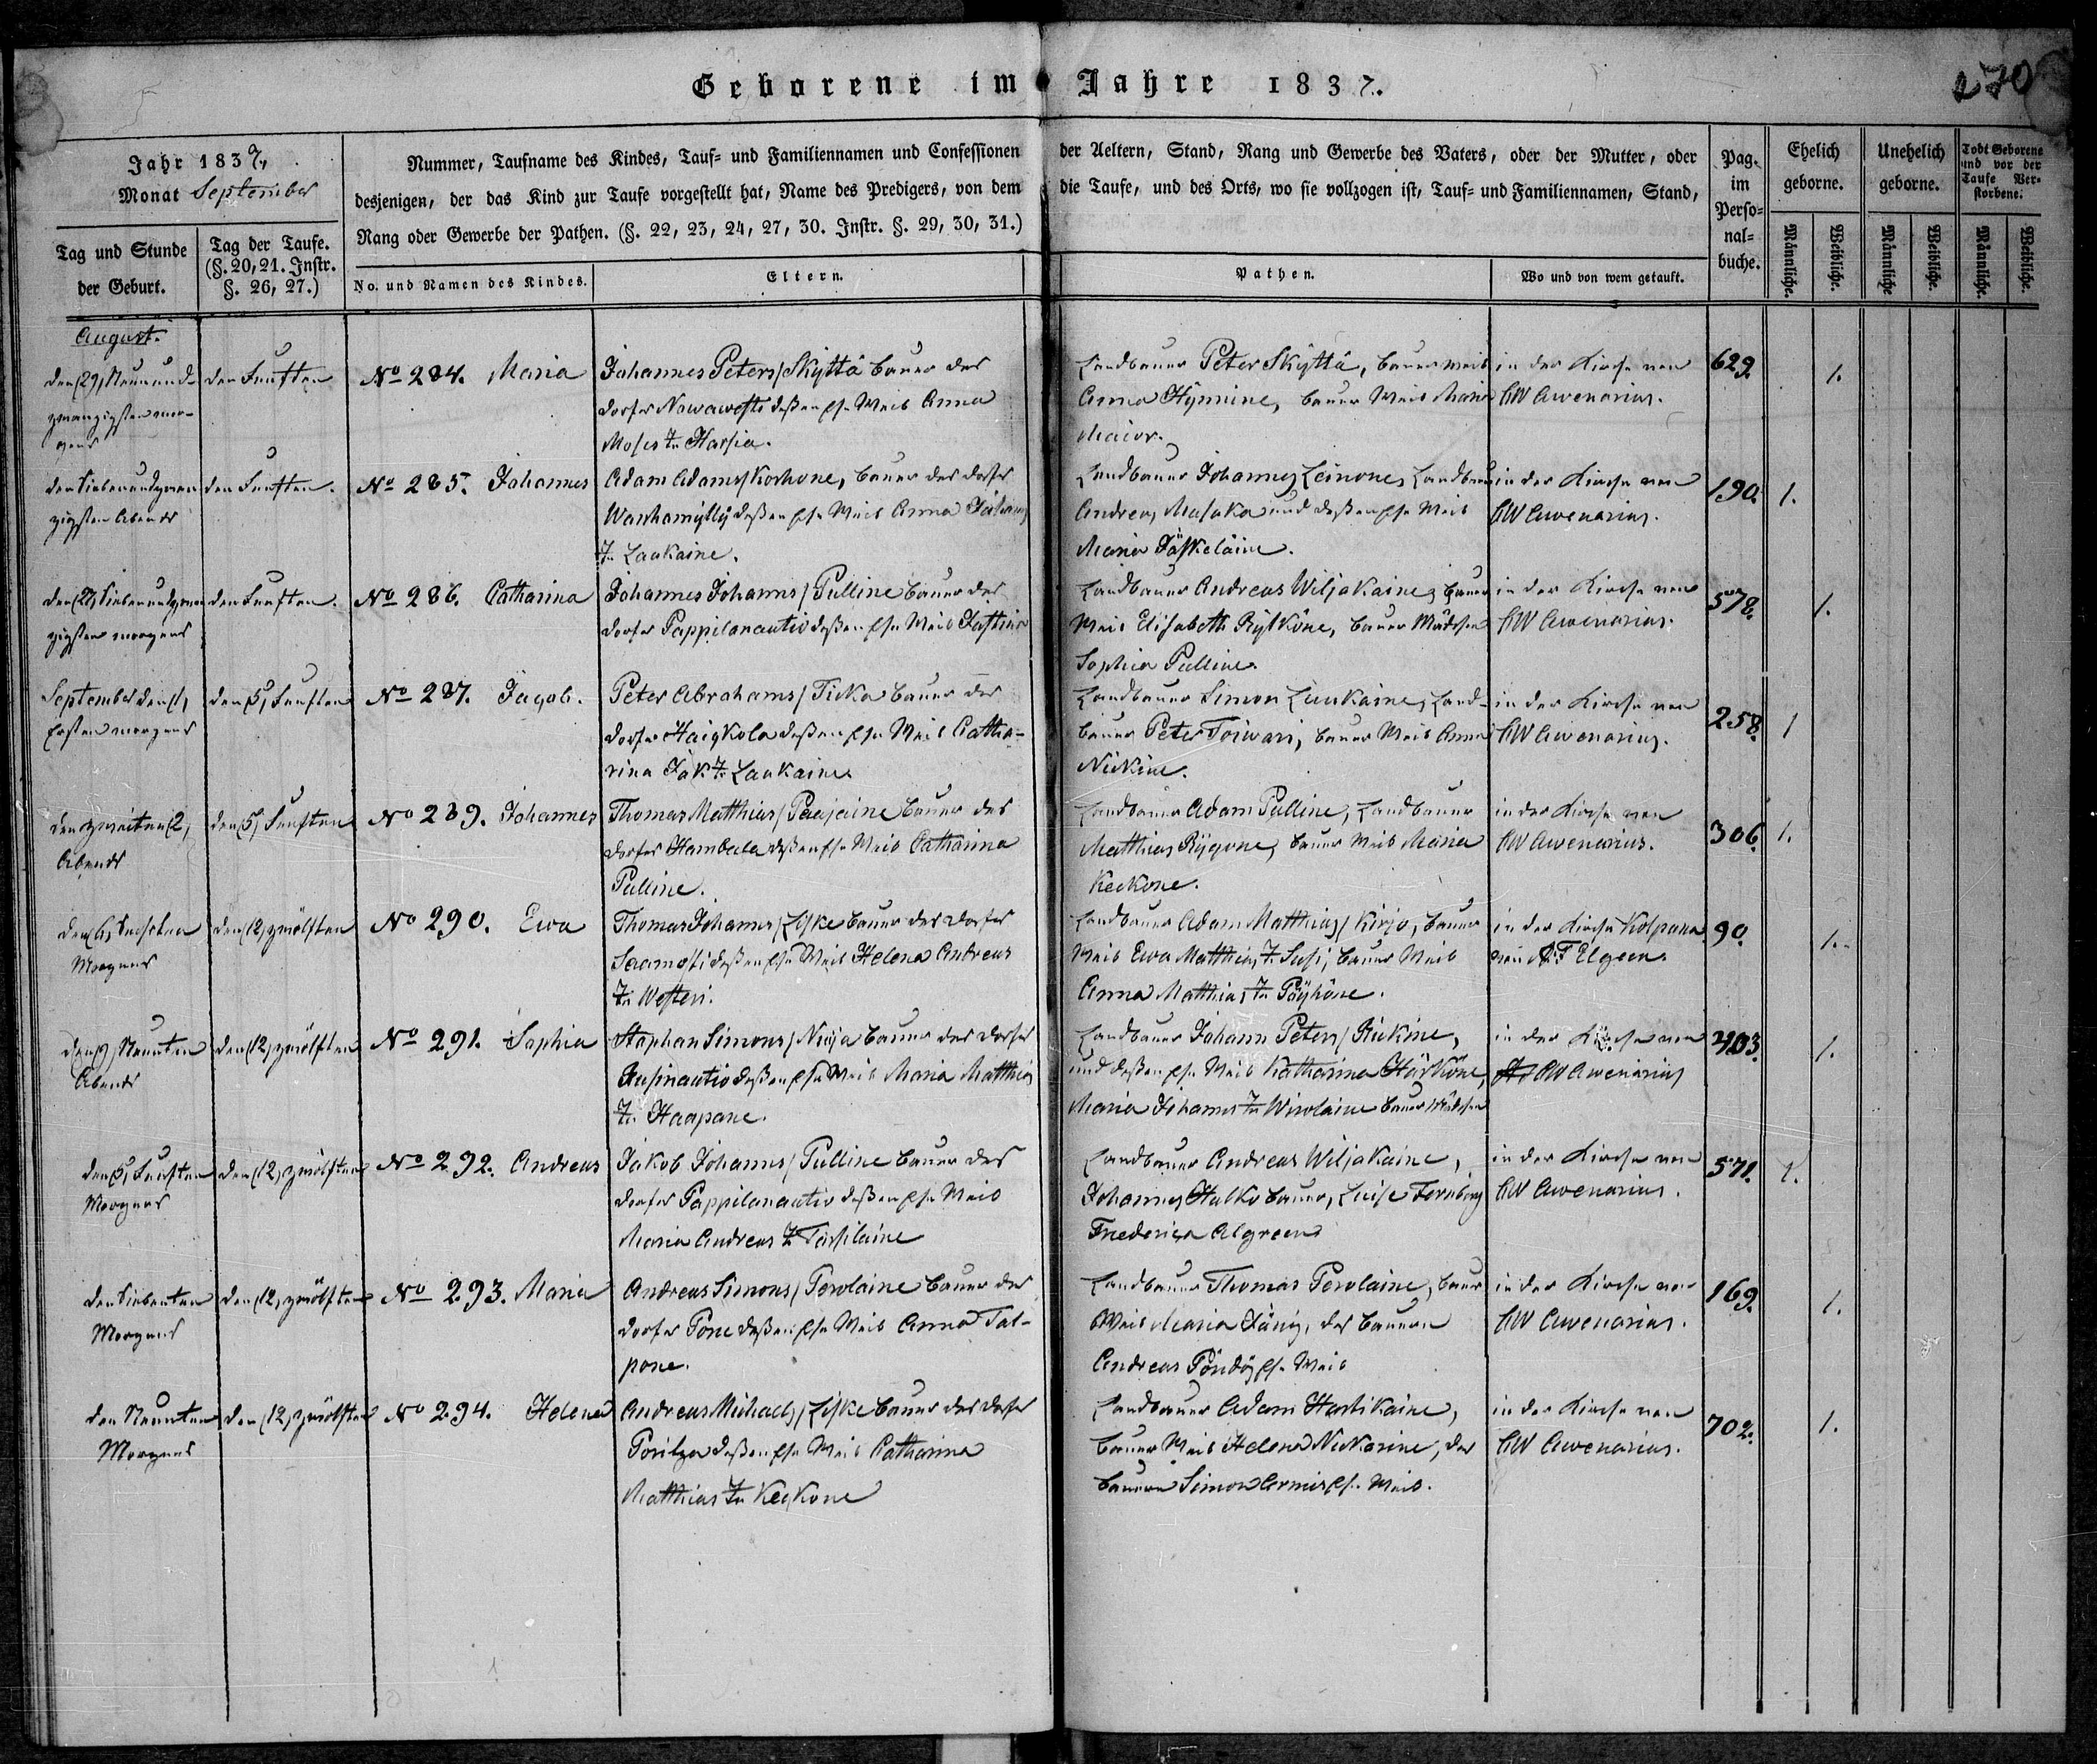 Geborene im Jahre 1837.
270
Jahr 1837,
Monat September
Nummer, Taufname des Kindes, Tauf= und Familiennamen und Confessionen der Aeltern, Stand, Rang und Gewerbe des Vaters, oder der Mutter, oder
desjenigen, der das Kind zur Taufe vorgestellt hat, Name des Predigers, von dem die Taufe, und des Orts, wo sie vollzogen ist, Tauf= und Familiennamen, Stand,
Rang oder Gewerbe der Pathen. (§. 22, 23, 24, 27, 30. Instr. §. 29, 30, 31.)
Tag und Stunde
der Geburt.
Tag der Taufe.
(§. 20, 21. Instr.
§. 26, 27.)
No. und Namen des Kindes.
Eltern.
Pathen.
Wo und von wem getauft.
Pag.
im
Perso=
nal=
buche.
Ehelich
geborne.
Unehelich
geborne.
Todt Geborene
und vor der
Taufe Ver=
storbene.
Männliche.
Weibliche.
Männliche
Weibliche.
Männliche.
Weibliche.
August.
den (29) Neunund-
zwanzigsten mor-
gens
den Fünften
No 284. Maria
Johannes Peters/Skyttä bauer des
dorfes Nawawesti deßen ehe Weib Anna
Moses T. Harsia.
Landbauer Peter Skyttä, bauer weib
Anna Hynnine, bauer Weib Maria
Maior.
in der Kirche von
AW Awenarius.
629.
1.
den Siebenundzwan
zigsten Abends
den Fünften.
No 285. Johannes
Adam Adams/Korhone, bauer des dorfes
Wanhamylly deßen ehe Weib Anna
T. Laukaine.
Landbauer Johannes Leinone, Landbauer
Andreas Masaka und deßen ehe Weib
Maria Jäskeläine.
in der Kirche von
AW Awenarius.
190.
1.
den (27) Siebenundzwan
zigsten morgens
den Fünften.
No 286. Catharina
Johannes Johanns/Pulline bauer des
dorfes Pappilanautio deßen ehe Weib Justina
Landbauer Andreas Wiljakaine, bauer
Weib Elisabeth Rytköne, bauer Mädchen
Sophia Pulline.
in der Kirche von
AW Awenarius.
578.
1.
September den (1)
Ersten morgens
den (5) Fünften
No 287. Jacob.
Peter Abrahams/Ticka bauer des
dorfes Haiykola deßen ehe Weib Catha-
rina Jak. T. Laukaine
Landbauer Simon Laukaine, Land-
bauer Peter Toiwari, bauer Weib Anna
Nickine.
in der Kirche von
AW Awenarius.
258.
1
den zweiten (2)
Abends
den (5) Fünften
No 289. Johannes
Thomas Matthias/Paajaine bauer des
dorfes Hambala deßen ehe Weib Catharina
Pulline.
Landbauer Adam Pulline, Landbauer
Matthias Ryyone, bauer Weib Maria
Keckone.
in der Kirche von
AW Awenarius.
306.
1.
den (6) Sechsten
Morgens
den (12) zwölften
No 290. Ewa
Thomas Johanns/Liske bauer des dorfes
Saamosti deßen ehe Weib Helena Andreas
T. Westeri.
Landbauer Adam Matthias/Kirjo, bauer
Weib Ewa Matthias T. Susi, bauer Weib
Anna Matthias T. Pöyhöne.
in der Kirche Kolpana
von A.F Elgren.
90.
1.
den (9) Neunten
Abends
den (12) zwölften
No 291. Sophia
Stephan Simons/Ninja bauer des dorfes
deßen ehe Weib Maria Matthias
T. Haapane.
Landbauer Johann Peters/Rickine,
und deßen ehe Weib Katharina Härköne,
Maria Johanns T. Wirolaine bauer Mädchen
in der Kirche von
AW Awenarius
403.
1.
den (5) Fünften
Morgens
den (12) zwölften
No 292. Andreas
Jakob Johanns/Pulline bauer des
dorfes Pappilanautio deßen ehe Weib
Maria Andreas T. Parsilaine
Landbauer Andreas Wiljakaine,
Johannes Hulko bauer, Luise Fernberg
Friederica Algreen
in der Kirche von
AW Awenarius.
571.
1.
den Siebenten
Morgens
den (12) zwölften
No 293. Maria
Andreas Simons/Perolaine bauer des
dorfes Pone deßen ehe Weib Anna Tat-
pone.
Landbauer Thomas Perolaine, bauer
Weib Maria Jänis, des bauern
Andreas Pöndö ehe Weib
in der Kirche von
AW Awenarius.
169.
1.
den Neunten
Morgens
den (12) zwölften
No 294. Helena
Andreas Michaels/Liske bauer des dorfes
Poritza deßen ehe Weib Catharina
Matthias T. Keckone
Landbauer Adam Hartikaine,
bauer Weib Helena Nickarine, des
bauern Simon Ermis ehe Weib.
in der Kirche von
AW Awenarius.
702.
1.